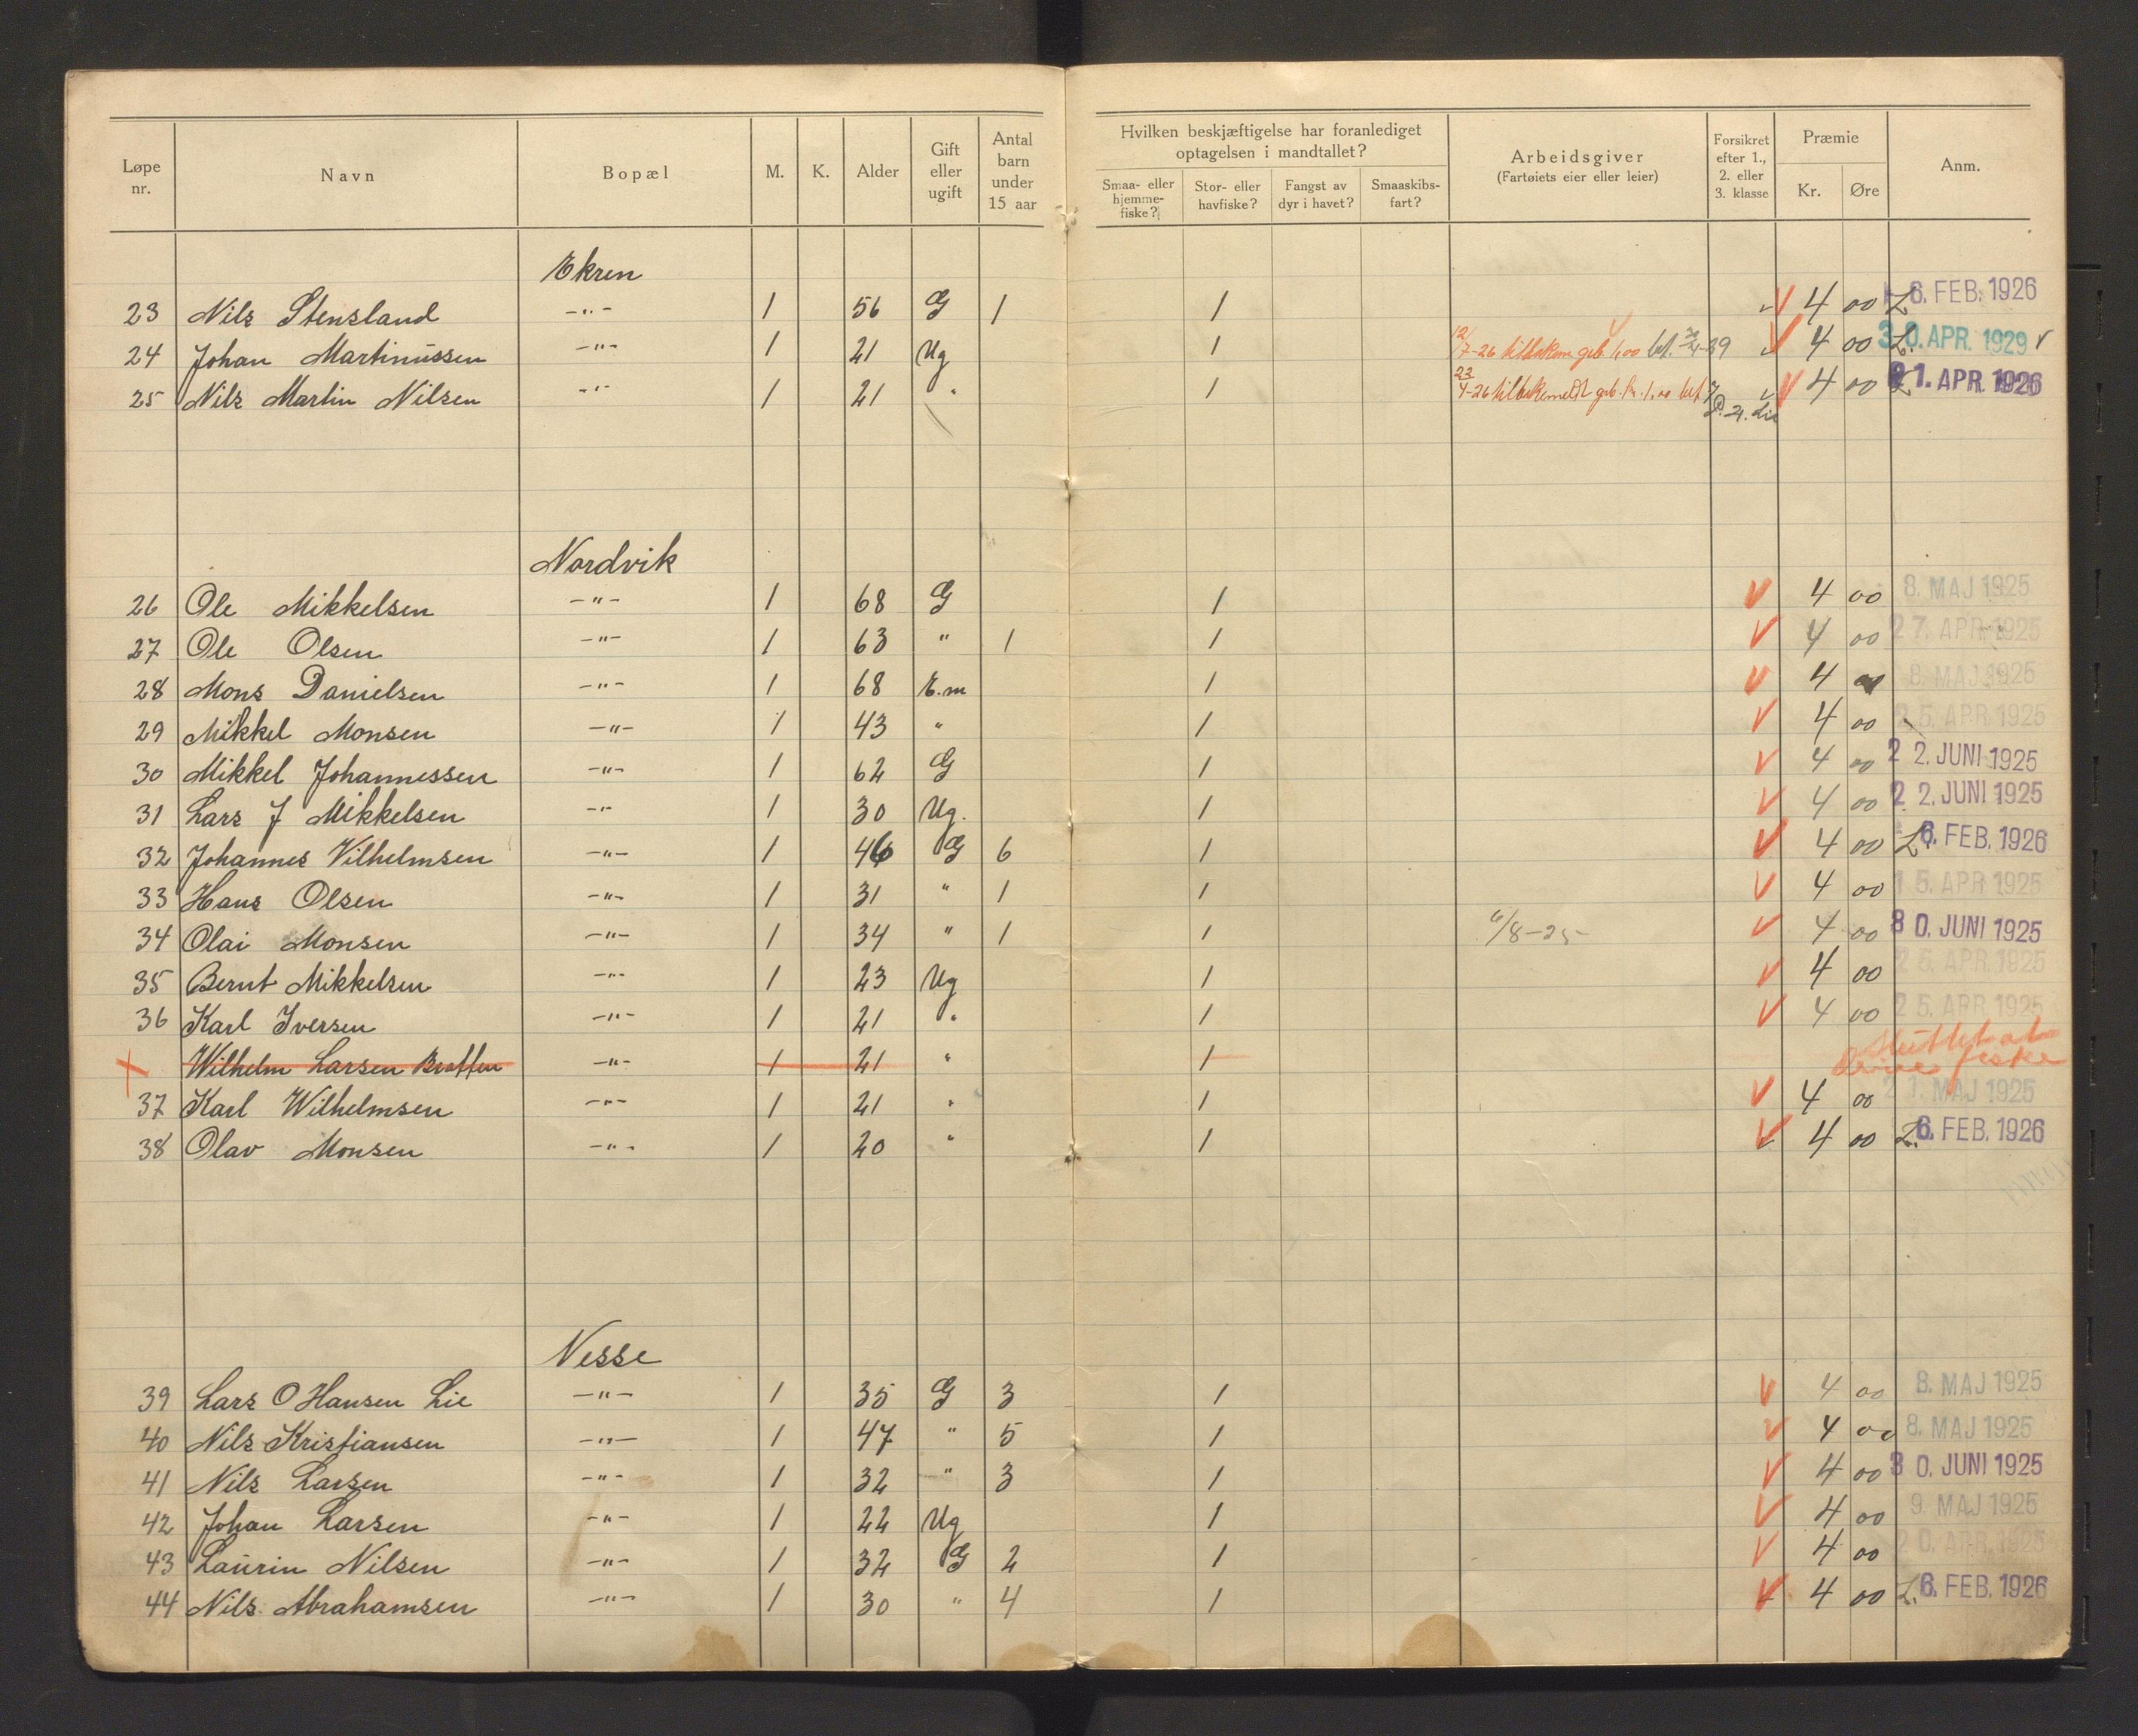 Løpe nr. Navn Bopæl M. K. Alder Gift eller ugift Antal barn under 15 aar Hvilken beskjæftigelse har foranlediget optagelsen i mandtallet? Smaa- eller hjemmefiske? Stor- eller havfiske? Fangst av dyr i havet? Smaaskibsfart? Arbeidsgiver (Fartøiets eier eller leier) Forsikret efter 1., 2. eller 3. klasse Præmie Kr. Øre Anm.
Ekren
23 Nils Stensland -"- 1 56 G 1 1 4 00 L 6. FEB. 1926
24 Johan Martinussen -"- 1 21 Ug 1 12/7-26 geb. 1,00 bet. 4 00 L. 30. APR. 1929
25 Nils Martin Nilsen -"- 1 21 " 1 23/4-26 tilbakemeldt geb. kr. 1,00 bet 4 00 21. APR. 1926
Nordvik
26 Ole Mikkelsen -"- 1 68 G 1 4 00 8. MAJ 1925
27 Ole Olsen -"- 1 63 " 1 1 4 00 27. APR 1925
28 Mons Danielsen -"- 1 68 E.m 1 4 00 8. MAJ 1925
29 Mikkel Monsen -"- 1 43 " 1 4 00 25. APR 1925
30 Mikkel Johannessen -"- 1 62 G 1 4 00 22. JUNI 1925
31 Lars J Mikkelsen -"- 1 30 Ug. 1 4 00 22. JUNI 1925
32 Johannes Vilhelmsen -"- 1 46 G 6 1 4 00 L. 6. FEB. 1926
33 Hans Olsen -"- 1 31 " 1 1 4 00 15. APR 1925
34 Olai Monsen -"- 1 34 " 1 1 6/8-25 4 00 30. JUNI 1925
35 Bernt Mikkelsen -"- 1 23 Ug 1 4 00 25. APR 1925
36 Karl Iversen -"- 1 21 " 1 4 00 25. APR 1925
Wilhelm Larsen Bratten -"- 1 21 " 1 Sluttet at drive fiske
37 Karl Wilhelmsen -"- 1 21 " 1 4 00 21. MAJ 1925
38 Olav Monsen -"- 1 20 " 1 4 00 L. 6. FEB. 1926
Nesse
39 Lars O Hansen Lie -"- 1 35 G 3 1 4 00 8. MAJ 1925
40 Nils Kristiansen -"- 1 47 " 5 1 4 00 8. MAJ 1925
41 Nils Larsen -"- 1 32 " 3 1 4 00 30. JUNI 1925
42 Johan Larsen -"- 1 22 Ug 1 4 00 9. MAJ 1925
43 Laurin Nilsen -"- 1 32 G 2 1 4 00 20. APR. 1925
44 Nils Abrahamsen -"- 1 30 " 4 1 4 00 L. 6. FEB. 1926